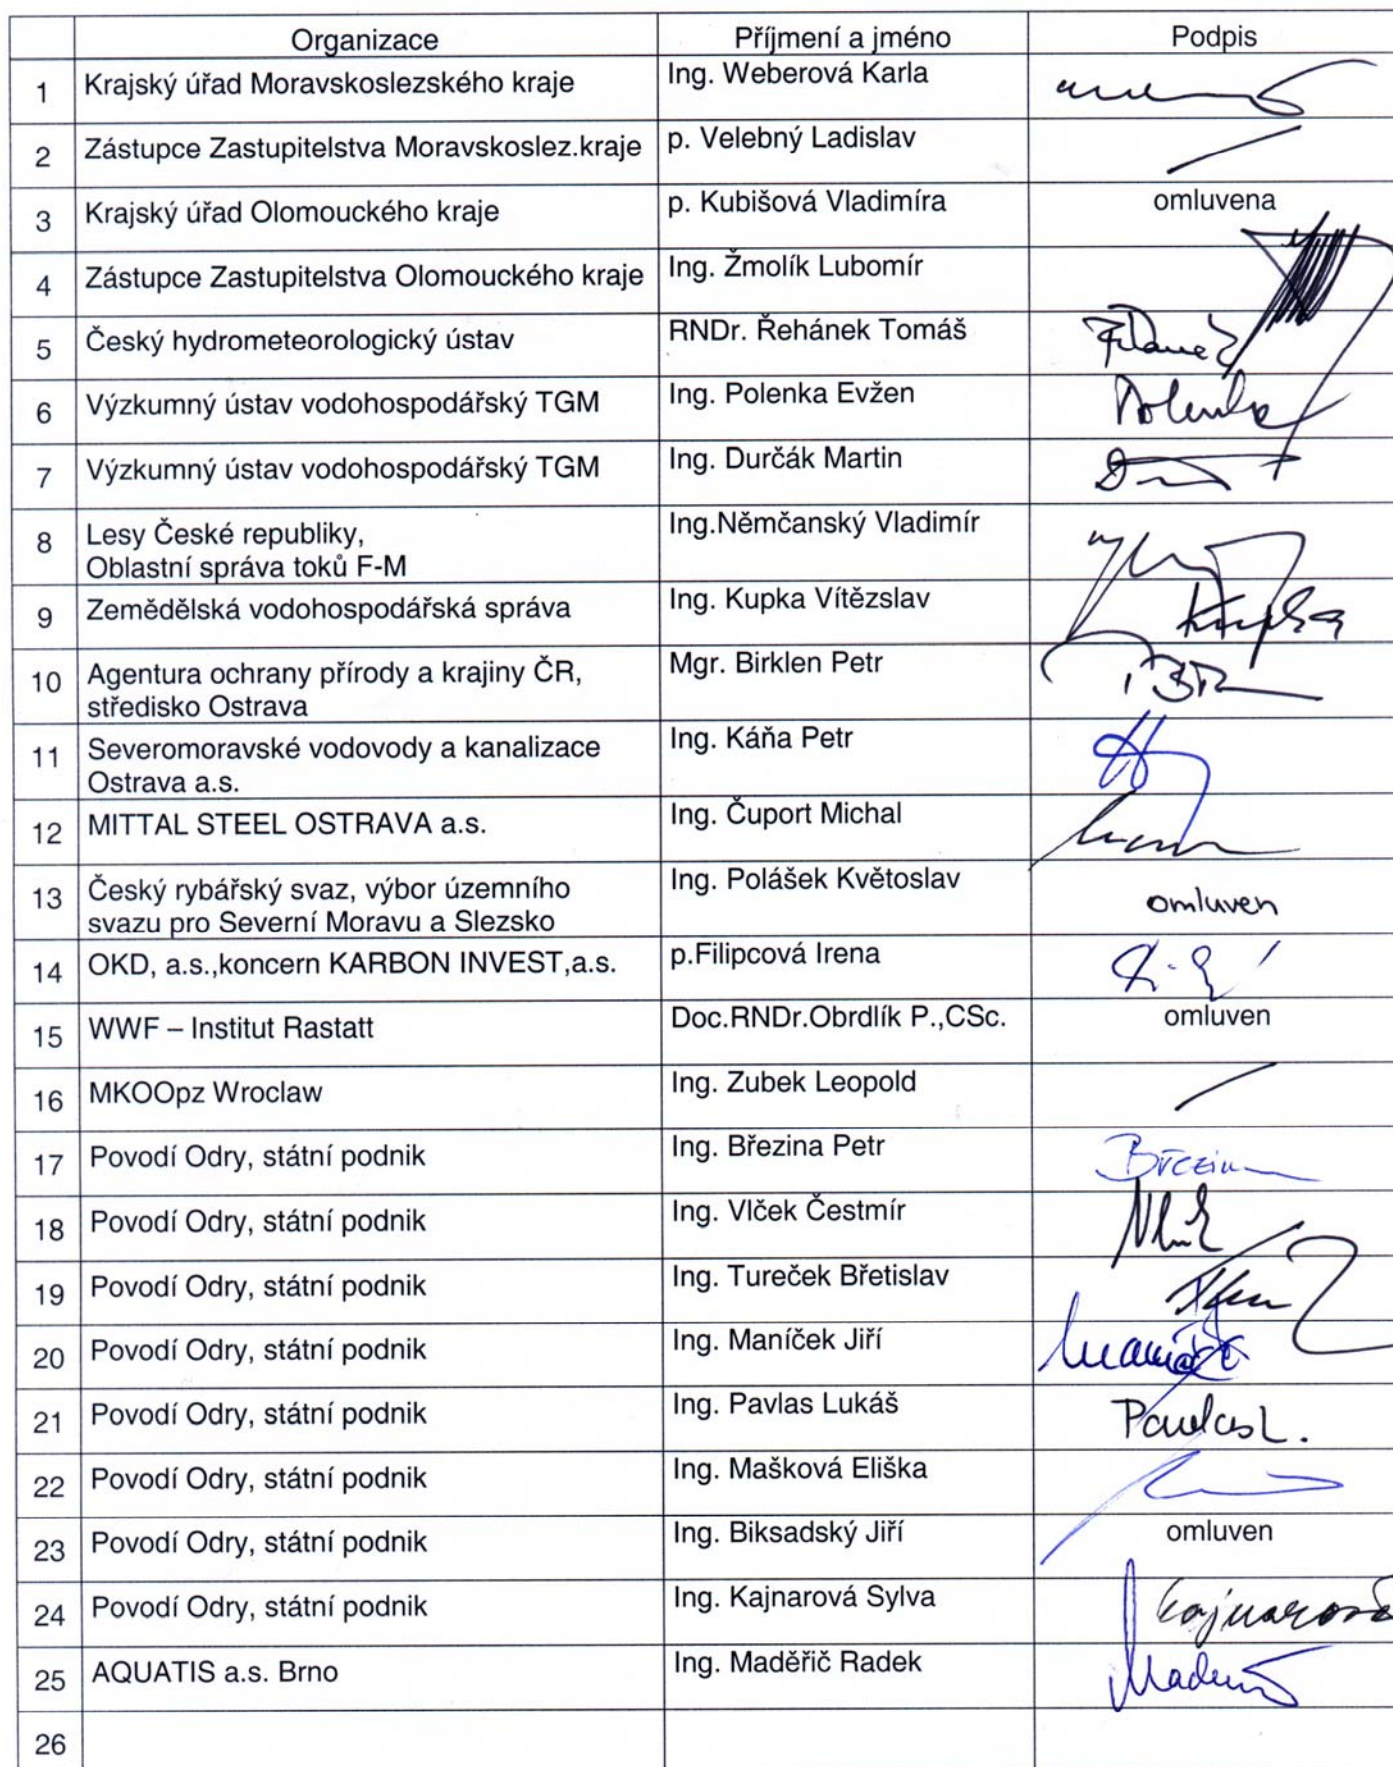 Organizace Příjmení a jméno Podpis
1 Krajský úřad Moravskoslezského kraje Ing. Weberová Karla
2 Zástupce Zastupitelstva Moravskoslez.kraje p. Velebný Ladislav
3 Krajský úřad Olomouckého kraje p. Kubišová Vladimíra omluvena
4 Zástupce Zastupitelstva Olomouckého kraje Ing. Žmolík Lubomír
5 Český hydrometeorologický ústav RNDr. Řehánek Tomáš
6 Výzkumný ústav vodohospodářský TGM Ing. Polenka Evžen Polenka
7 Výzkumný ústav vodohospodářský TGM Ing. Durčák Martin
8 Lesy České republiky, Ing.Němčanský Vladimír
Oblastní správa toků F-M
9 Zemědělská vodohospodářská správa Ing. Kupka Vítězslav Kupka
10 Agentura ochrany přírody a krajiny ČR, Mgr. Birklen Petr
středisko Ostrava
11 Severomoravské vodovody a kanalizace Ing. Káňa Petr
Ostrava a.s.
12 MITTAL STEEL OSTRAVA a.s. Ing. Čuport Michal
13 Český rybářský svaz, výbor územního Ing. Polášek Květoslav omluven
svazu pro Severní Moravu a Slezsko
14 OKD, a.s.,koncern KARBON INVEST,a.s. p.Filipcová Irena
15 WWF – Institut Rastatt Doc.RNDr.Obrdlík P.,CSc. omluven
16 MKOOpz Wroclaw Ing. Zubek Leopold
17 Povodí Odry, státní podnik Ing. Březina Petr Březina
18 Povodí Odry, státní podnik Ing. Vlček Čestmír
19 Povodí Odry, státní podnik Ing. Tureček Břetislav
20 Povodí Odry, státní podnik Ing. Maníček Jiří Maníček
21 Povodí Odry, státní podnik Ing. Pavlas Lukáš Pavlas L.
22 Povodí Odry, státní podnik Ing. Mašková Eliška
23 Povodí Odry, státní podnik Ing. Biksadský Jiří omluven
24 Povodí Odry, státní podnik Ing. Kajnarová Sylva Kajnarová
25 AQUATIS a.s. Brno Ing. Maděřič Radek
26